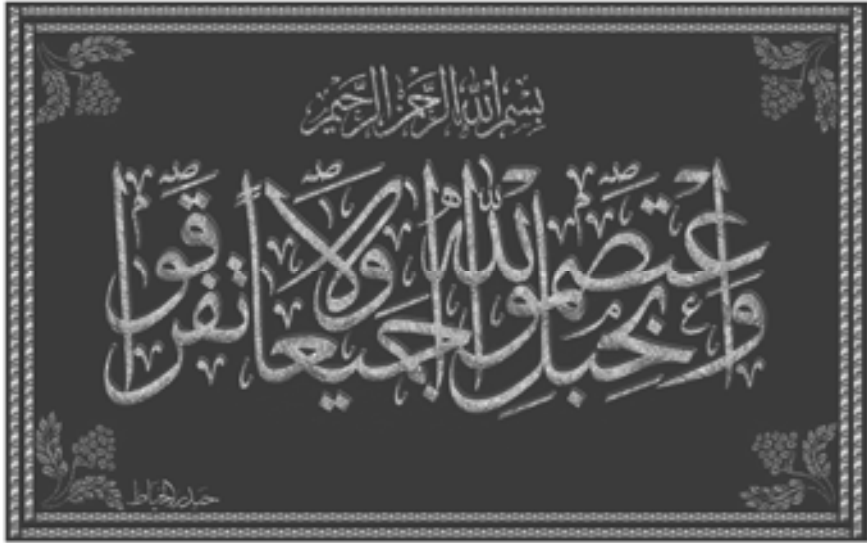 بِسْمِ اللهِ الرَّحْمٰنِ الرَّحِيْمِ
وَاعْتَصِمُوا بِحَبْلِ اللهِ جَمِيعًا وَلَا تَفَرَّقُوا
حيدر الخياط